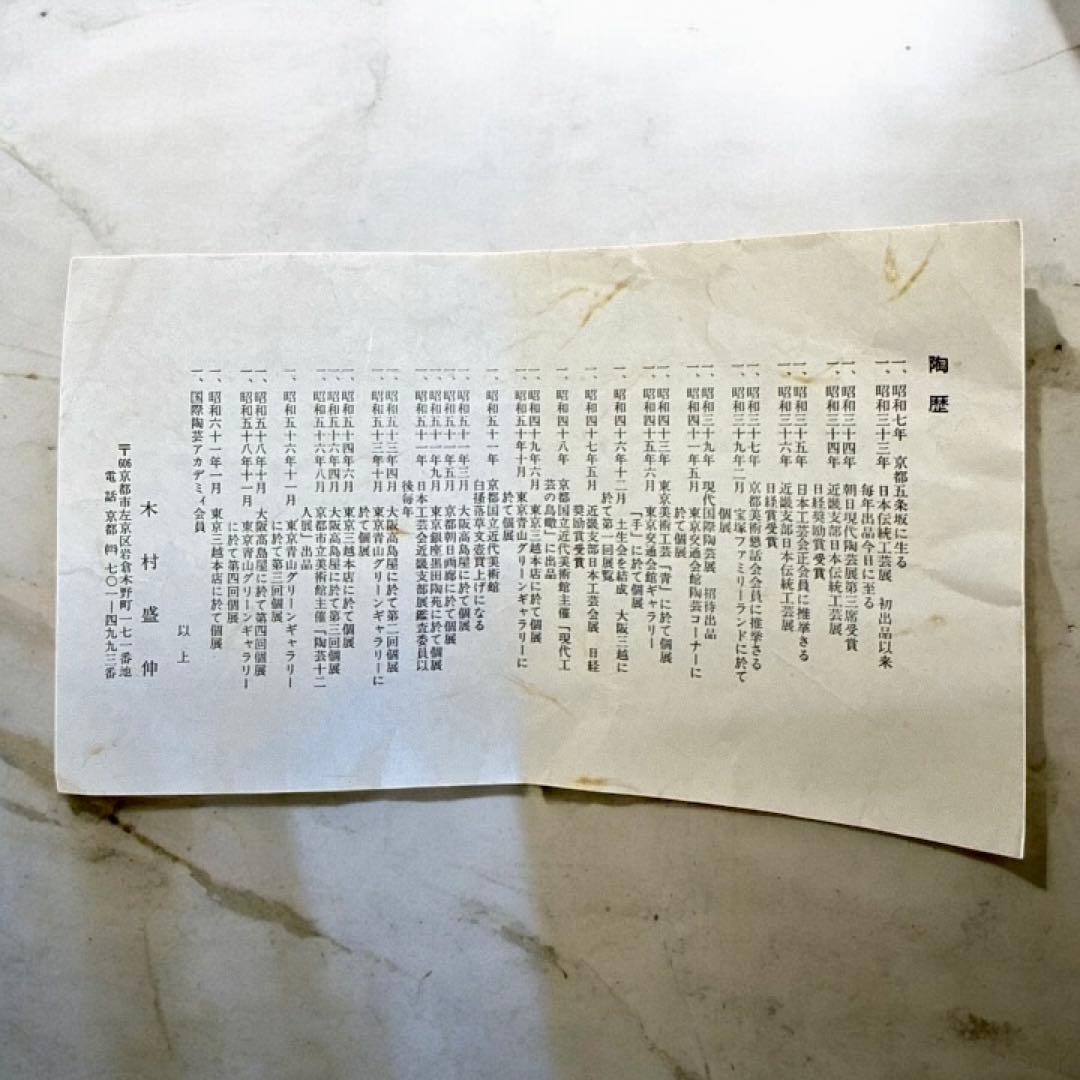 陶歴
一、昭和七年 京都五条坂に生る
一、昭和三十三年 日本伝統工芸展 初出品以来
毎年出品今日に至る
一、昭和三十四年 朝日現代陶芸展第三席受賞
一、昭和三十四年 近畿支部日本伝統工芸展
日経奨励賞受賞
一、昭和三十五年 日本工芸会正会員に推挙さる
一、昭和三十六年 近畿支部日本伝統工芸展
日経賞受賞
一、昭和三十七年 京都美術懇話会会員に推挙さる
一、昭和三十九年二月 宝塚ファミリーランドに於て
個展
一、昭和三十九年 現代国際陶芸展 招待出品
一、昭和四十一年五月 東京交通会館陶芸コーナーに
於て個展
一、昭和四十三年 東京美術工芸「青」に於て個展
一、昭和四十五年六月 東京交通会館ギャラリー
「手」に於て個展
一、昭和四十六年十二月 土生会を結成 大阪三越に
於て第一回展覧
一、昭和四十七年五月 近畿支部日本工芸会展 日経
奨励賞受賞
一、昭和四十八年 京都国立近代美術館主催「現代工
芸の鳥瞰」に出品
一、昭和四十九年六月 東京三越本店に於て個展
一、昭和五十年十月 東京青山グリーンギャラリーに
於て個展
一、昭和五十一年 京都国立近代美術館
白掻落草文壺買上げになる
一、昭和五十一年三月 大阪高島屋に於て個展
一、昭和五十一年五月 京都朝日画廊に於て個展
一、昭和五十一年九月 東京銀座黒田陶苑に於て個展
一、昭和五十一年 日本工芸会近畿支部展鑑査委員以
後毎年
一、昭和五十三年四月 大阪高島屋に於て第二回個展
一、昭和五十三年十月 東京青山グリーンギャラリーに
於て個展
一、昭和五十四年六月 東京三越本店に於て個展
一、昭和五十六年四月 大阪高島屋に於て第三回個展
一、昭和五十六年八月 京都市立美術館主催「陶芸十二
人展」出品
一、昭和五十六年十一月 東京青山グリーンギャラリー
に於て第三回個展
一、昭和五十八年十月 大阪高島屋に於て第四回個展
一、昭和五十八年十一月 東京青山グリーンギャラリー
に於て第四回個展
一、昭和六十一年一月 東京三越本店に於て個展
一、国際陶芸アカデミィ会員
以上
木村盛伸
〒606京都市左京区岩倉木野町一七一番地
電話 京都 七〇一―四九九三番